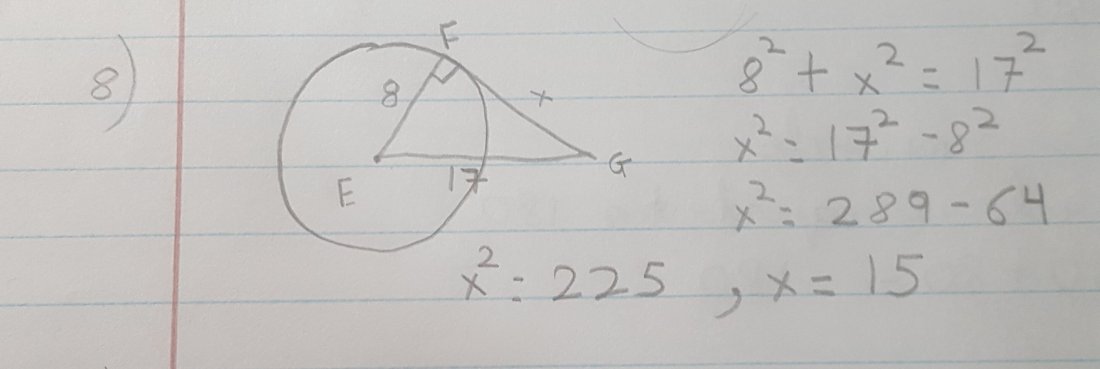 8)
F
8
x
E
17
G
8² + x² = 17²
x² = 17² - 8²
x² = 289 - 64
x² = 225 , x = 15